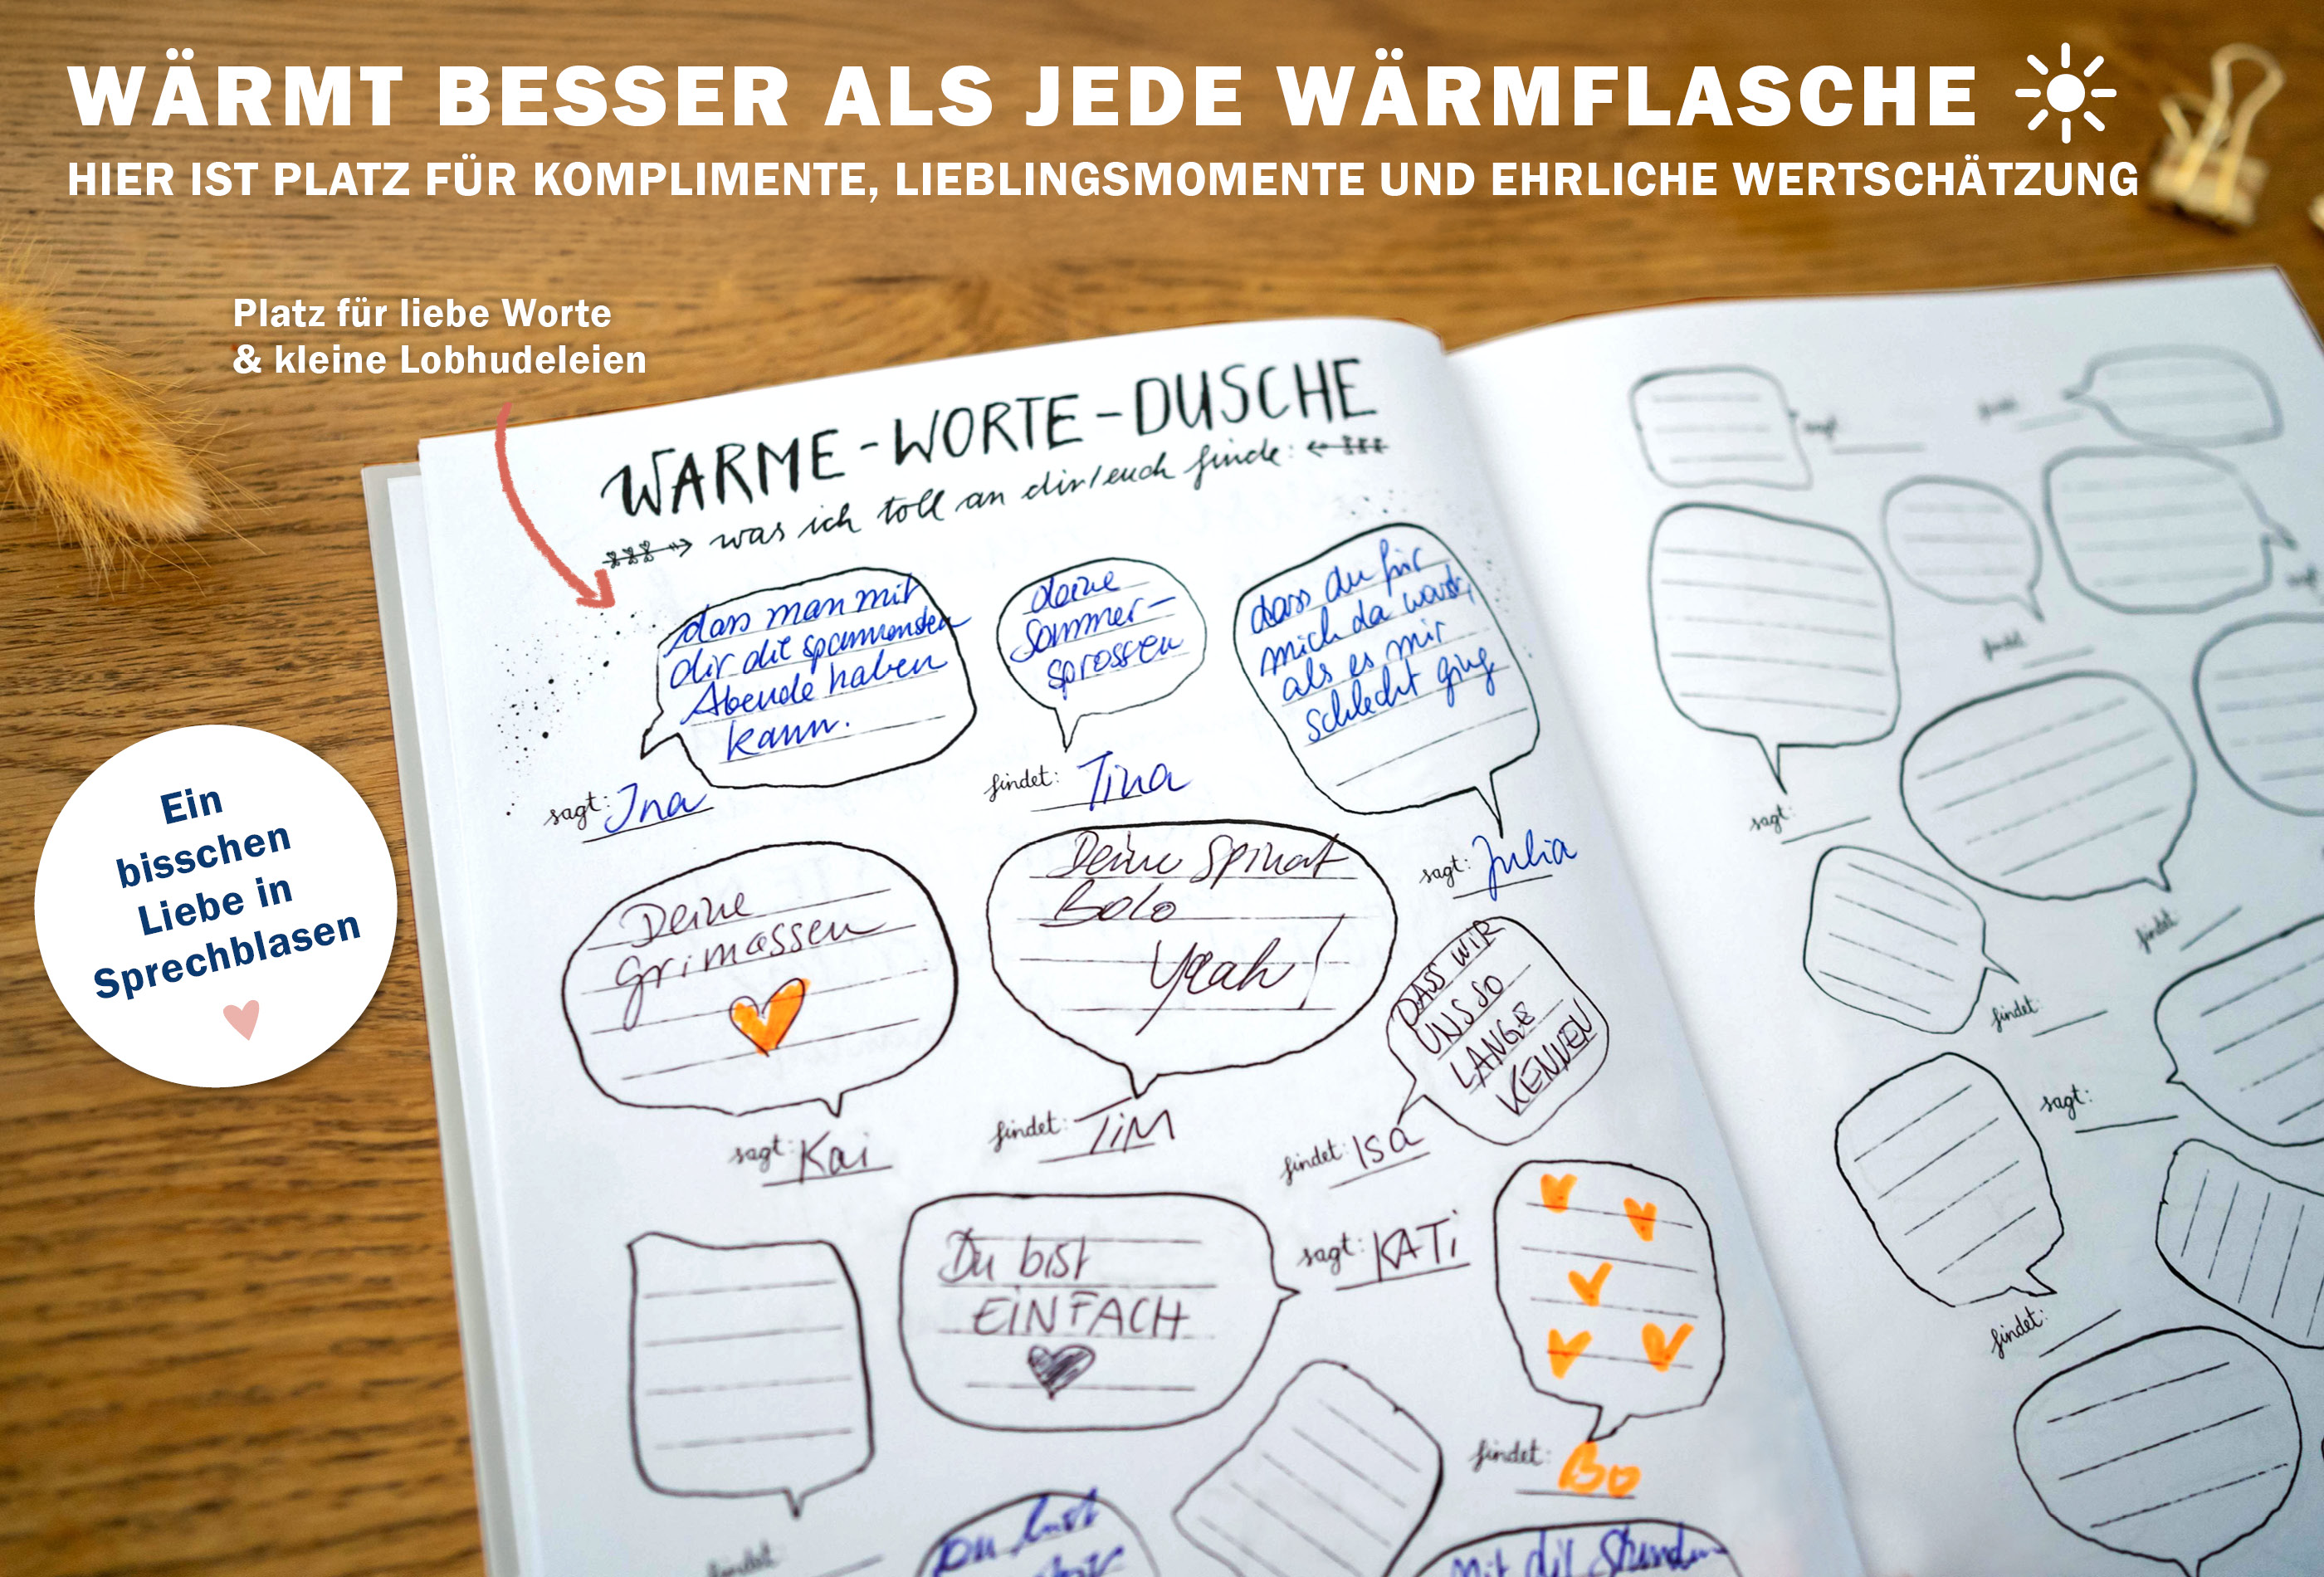 WÄRMT BESSER ALS JEDE WÄRMFLASCHE
HIER IST PLATZ FÜR KOMPLIMENTE, LIEBLINGSMOMENTE UND EHRLICHE WERTSCHÄTZUNG
Platz für liebe Worte
& kleine Lobhudeleien
Ein
bisschen
Liebe in
Sprechblasen
WARME-WORTE-DUSCHE
was ich toll an dir/euch finde:
dass man mit
dir die spannensten
Abende haben
kann.
sagt: Ina
deine
Sommer-
sprossen
findet: Tina
dass du für
mich da warst,
als es mir
schlecht ging
sagt: Julia
Deine
Grimassen
sagt: Kai
Deine Spinat
Bolo
Yeah!
findet: TiM
DASS WIR
UNS SO
LANGE
KENNEN
findet: ISa
Du bist
EiNFACH
sagt: KATi
findet: Bo
findet:
Du hast
mit dir Stunden
sagt:
findet:
findet:
sagt:
findet:
findet:
sagt:
findet: